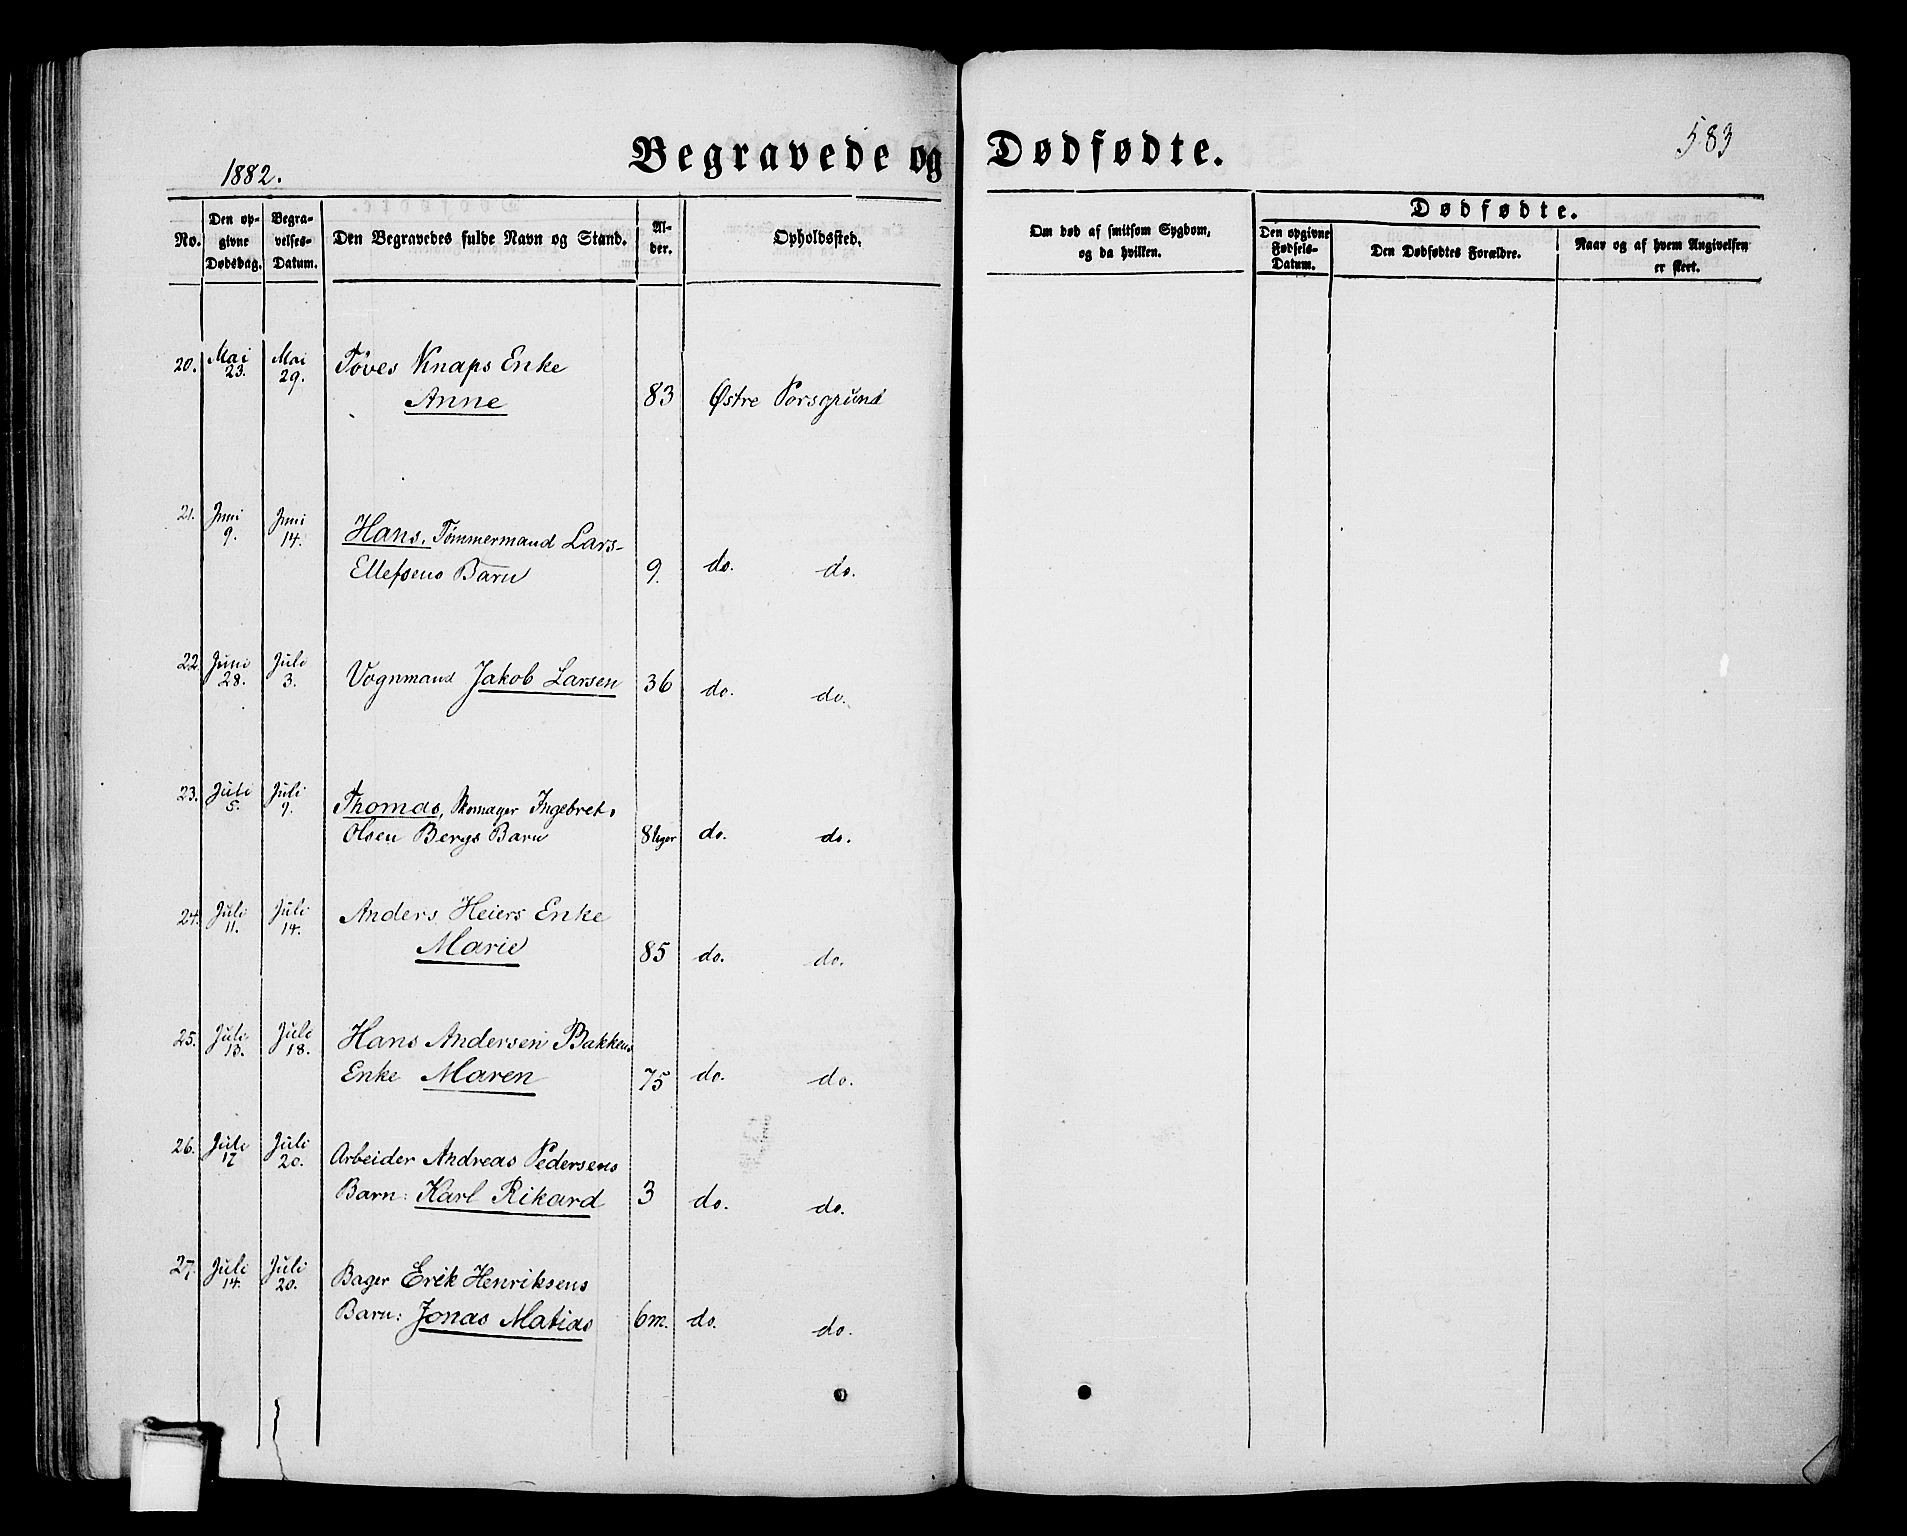 1882.
Begravede og Dødfødte.
583
No.
Den opgivne Dødsdag.
Begravelses-Datum.
Den Begravedes fulde Navn og Stand.
Alder.
Opholdssted.
Om død af smitsom Sygdom, og da hvilken.
Dødfødte.
Den opgivne Fødsels-Datum.
Den Dødfødtes Forældre.
Naar og af hvem Angivelsen er skeet.
20. Mai 23. Mai 29. Töves Knaps Enke
Anne 83 Østre Porsgrund
21. Juni 9. Juni 14. Hans, Tømmermand Lars
Ellefsens Barn 9. do. do.
22. Juni 28. Juli 3. Vognmand Jakob Larsen 36 do. do.
23. Juli 5. Juli 9. Thomas, Skomager Ingebret
Olsen Bergs Barn 8 Uger do. do.
24. Juli 11. Juli 14. Anders Heiers Enke
Marie 85 do. do.
25. Juli 13. Juli 18. Hans Andersen Bakkens
Enke Maren 75 do. do.
26. Juli 17 Juli 20. Arbeider Andreas Pedersens
Barn: Karl Rikard 3 do. do.
27. Juli 14. Juli 20. Bager Erik Henriksens
Barn: Jonas Matias 6 m. do. do.